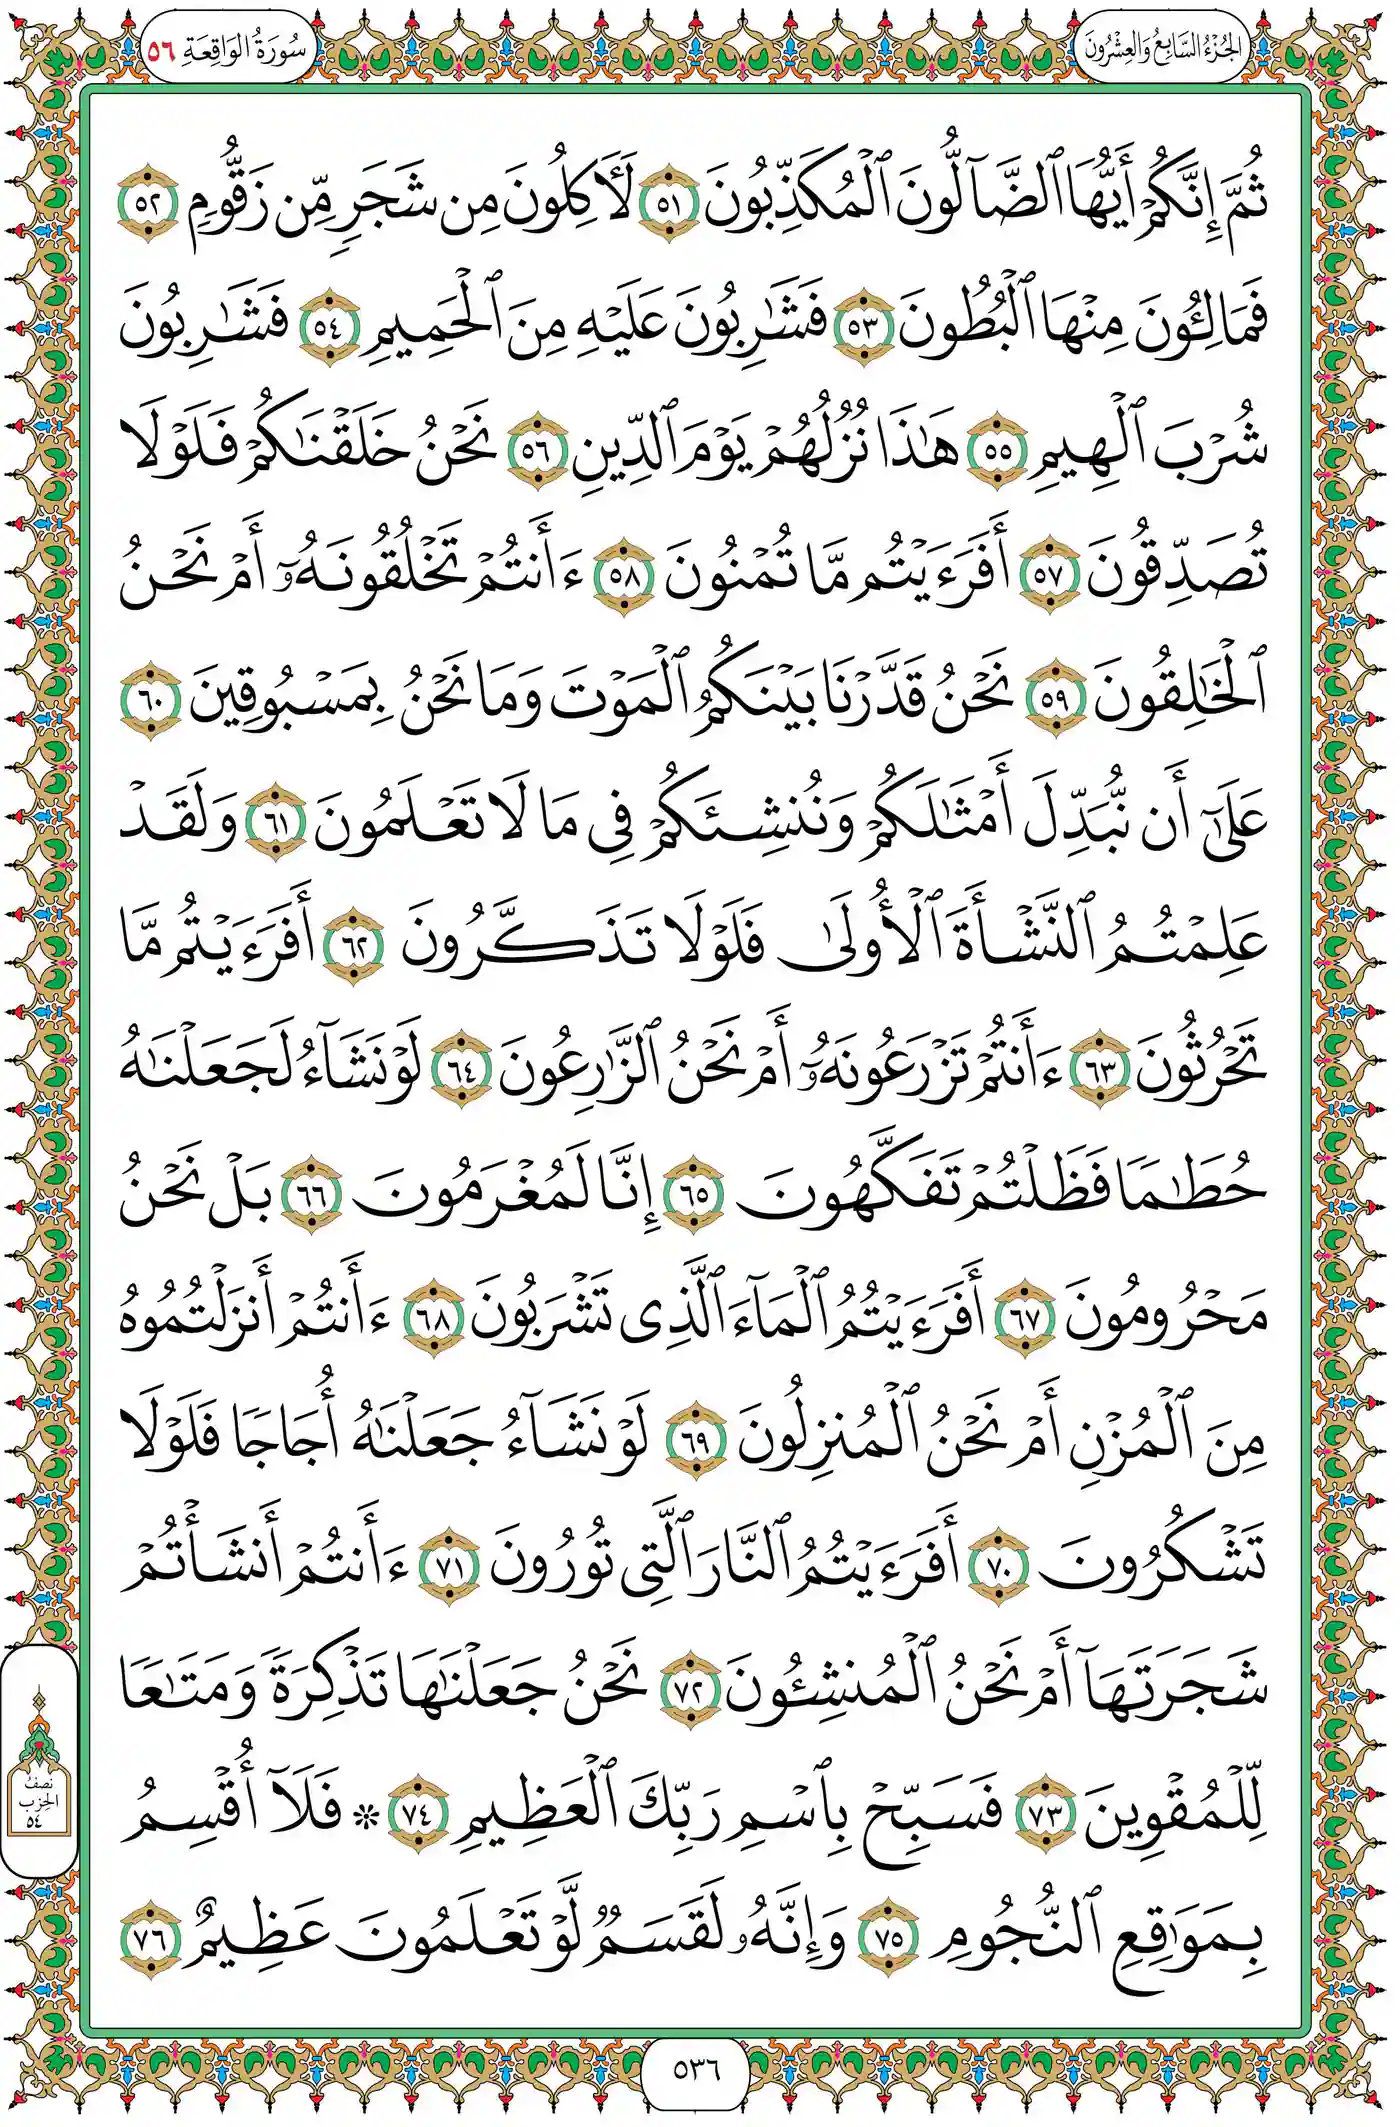 الجُزْءُ السَّابِعُ وَالعِشْرُونَ
سُورَةُ الوَاقِعَةِ ٥٦
ثُمَّ إِنَّكُمْ أَيُّهَا ٱلضَّآلُّونَ ٱلْمُكَذِّبُونَ ٥١ لَأٓكِلُونَ مِن شَجَرٍ مِّن زَقُّومٍ ٥٢
فَمَالِـُٔونَ مِنْهَا ٱلْبُطُونَ ٥٣ فَشَٰرِبُونَ عَلَيْهِ مِنَ ٱلْحَمِيمِ ٥٤ فَشَٰرِبُونَ
شُرْبَ ٱلْهِيمِ ٥٥ هَٰذَا نُزُلُهُمْ يَوْمَ ٱلدِّينِ ٥٦ نَحْنُ خَلَقْنَٰكُمْ فَلَوْلَا
تُصَدِّقُونَ ٥٧ أَفَرَءَيْتُم مَّا تُمْنُونَ ٥٨ ءَأَنتُمْ تَخْلُقُونَهُۥٓ أَمْ نَحْنُ
ٱلْخَٰلِقُونَ ٥٩ نَحْنُ قَدَّرْنَا بَيْنَكُمُ ٱلْمَوْتَ وَمَا نَحْنُ بِمَسْبُوقِينَ ٦٠
عَلَىٰٓ أَن نُّبَدِّلَ أَمْثَٰلَكُمْ وَنُنشِئَكُمْ فِى مَا لَا تَعْلَمُونَ ٦١ وَلَقَدْ
عَلِمْتُمُ ٱلنَّشْأَةَ ٱلْأُولَىٰ فَلَوْلَا تَذَكَّرُونَ ٦٢ أَفَرَءَيْتُم مَّا
تَحْرُثُونَ ٦٣ ءَأَنتُمْ تَزْرَعُونَهُۥٓ أَمْ نَحْنُ ٱلزَّٰرِعُونَ ٦٤ لَوْ نَشَآءُ لَجَعَلْنَٰهُ
حُطَٰمًا فَظَلْتُمْ تَفَكَّهُونَ ٦٥ إِنَّا لَمُغْرَمُونَ ٦٦ بَلْ نَحْنُ
مَحْرُومُونَ ٦٧ أَفَرَءَيْتُمُ ٱلْمَآءَ ٱلَّذِى تَشْرَبُونَ ٦٨ ءَأَنتُمْ أَنزَلْتُمُوهُ
مِنَ ٱلْمُزْنِ أَمْ نَحْنُ ٱلْمُنزِلُونَ ٦٩ لَوْ نَشَآءُ جَعَلْنَٰهُ أُجَاجًا فَلَوْلَا
تَشْكُرُونَ ٧٠ أَفَرَءَيْتُمُ ٱلنَّارَ ٱلَّتِى تُورُونَ ٧١ ءَأَنتُمْ أَنشَأْتُمْ
شَجَرَتَهَآ أَمْ نَحْنُ ٱلْمُنشِـُٔونَ ٧٢ نَحْنُ جَعَلْنَٰهَا تَذْكِرَةً وَمَتَٰعًا
لِّلْمُقْوِينَ ٧٣ فَسَبِّحْ بِٱسْمِ رَبِّكَ ٱلْعَظِيمِ ٧٤ * فَلَآ أُقْسِمُ
بِمَوَٰقِعِ ٱلنُّجُومِ ٧٥ وَإِنَّهُۥ لَقَسَمٌ لَّوْ تَعْلَمُونَ عَظِيمٌ ٧٦
نصف
الحزب
٥٤
٥٣٦